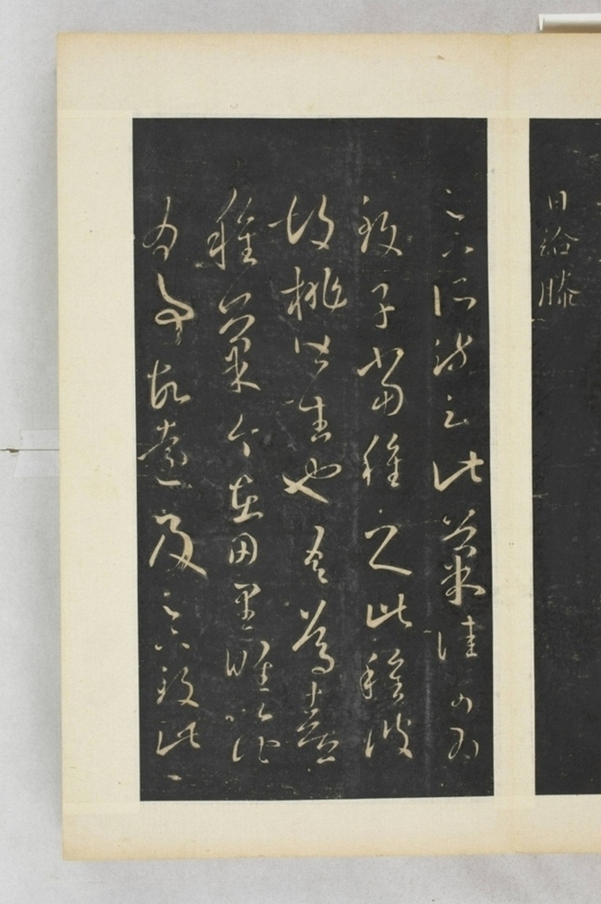 日給滕
足下所疏云此菓佳可為
致子當種之此種彼
胡桃皆生也吾篤喜
種菓今在田里唯以此
為事故遠及足下致此